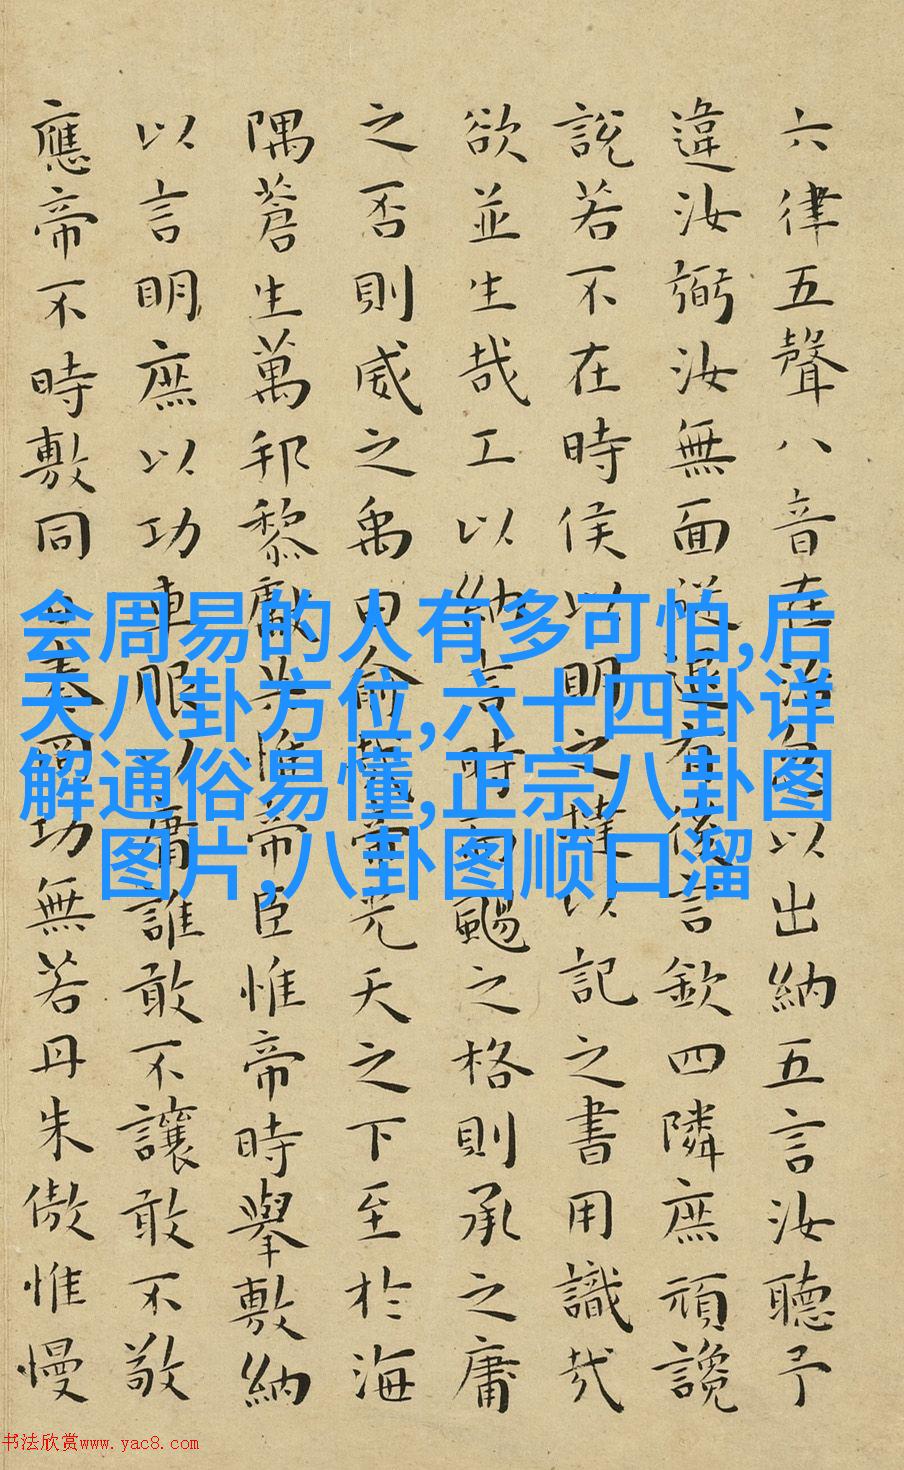 六律五聲八音在治忽以出納五言汝聽予
違汝弼汝無面從退有後言欽四隣庶頑讒
說若不在時侯以明之撻以記之書用識哉
欲並生哉工以納言時而颺之格則承之庸
之否則威之禹曰俞哉帝光天之下至於海
隅蒼生萬邦黎獻共惟帝臣惟帝時舉敷納
以言明庶以功車服以庸誰敢不讓敢不敬
應帝不時敷同日奏罔功無若丹朱傲惟慢
会周易的人有多可怕,后
天八卦方位,六十四卦详
解通俗易懂,正宗八卦图
图片,八卦图顺口溜
书法欣赏www.yac8.com